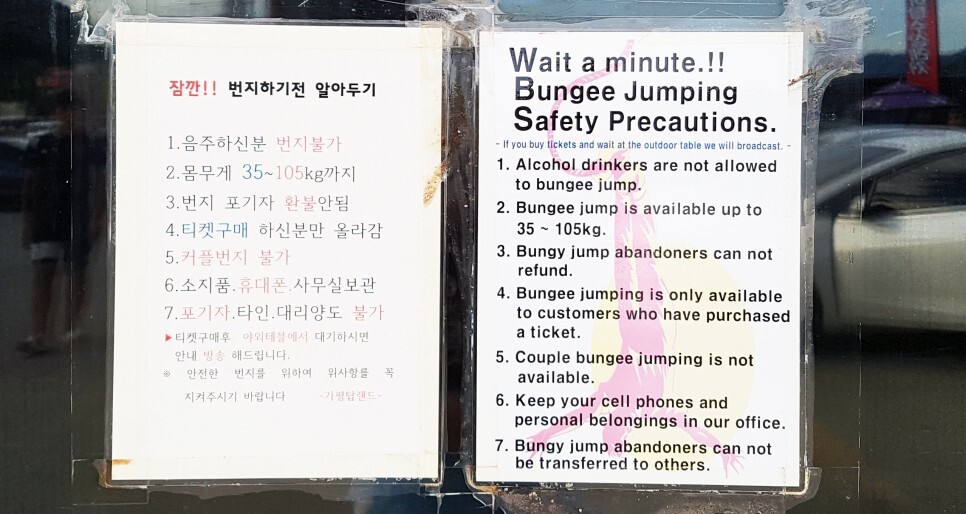 잠깐!! 번지하기전 알아두기
1.음주하신분 번지불가
2.몸무게 35~105kg까지
3.번지 포기자 환불안됨
4.티켓구매 하신분만 올라감
5.커플번지 불가
6.소지품.휴대폰.사무실보관
7.포기자.타인.대리양도 불가
▶티켓구매후 야외테블에서 대기하시면
안내 방송 해드립니다.
※ 안전한 번지를 위하여 위사항를 꼭
지켜주시기 바랍니다 -가평탑랜드-
Wait a minute.!!
Bungee Jumping
Safety Precautions.
- If you buy tickets and wait at the outdoor table we will broadcast. -
1. Alcohol drinkers are not allowed
to bungee jump.
2. Bungee jump is available up to
35 ~ 105kg.
3. Bungy jump abandoners can not
refund.
4. Bungee jumping is only available
to customers who have purchased
a ticket.
5. Couple bungee jumping is not
available.
6. Keep your cell phones and
personal belongings in our office.
7. Bungy jump abandoners can not
be transferred to others.